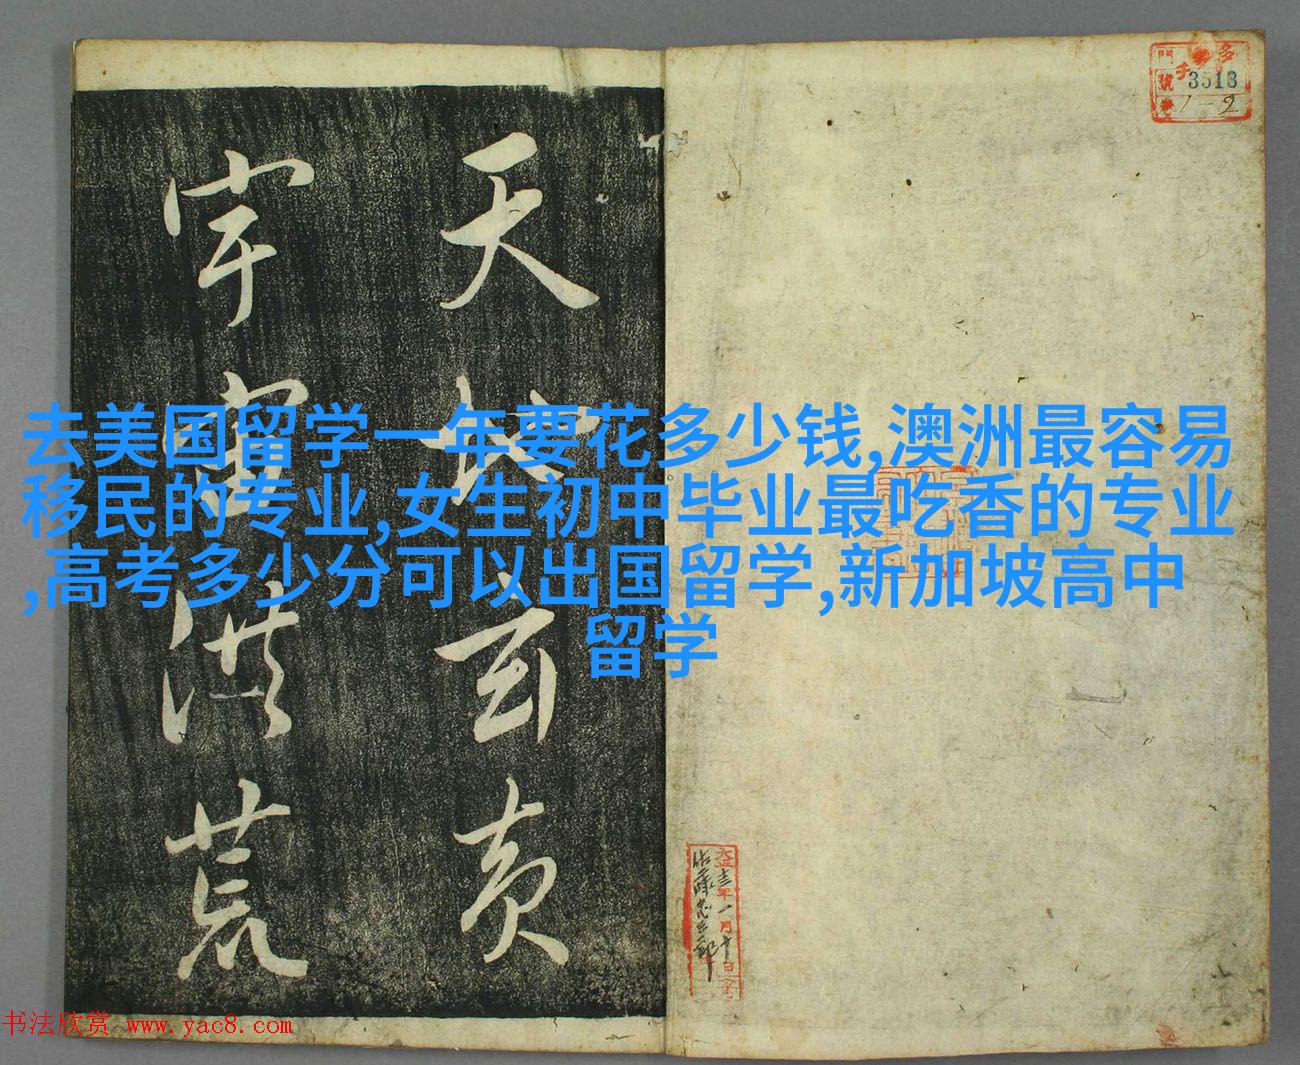 天地玄黄
宇宙洪荒
3513
1-2
去美国留学一年要花多少钱,澳洲最容易
移民的专业,女生初中毕业最吃香的专业
,高考多少分可以出国留学,新加坡高中
留学
大正十三年一月十日
书法欣赏 www.yac8.com